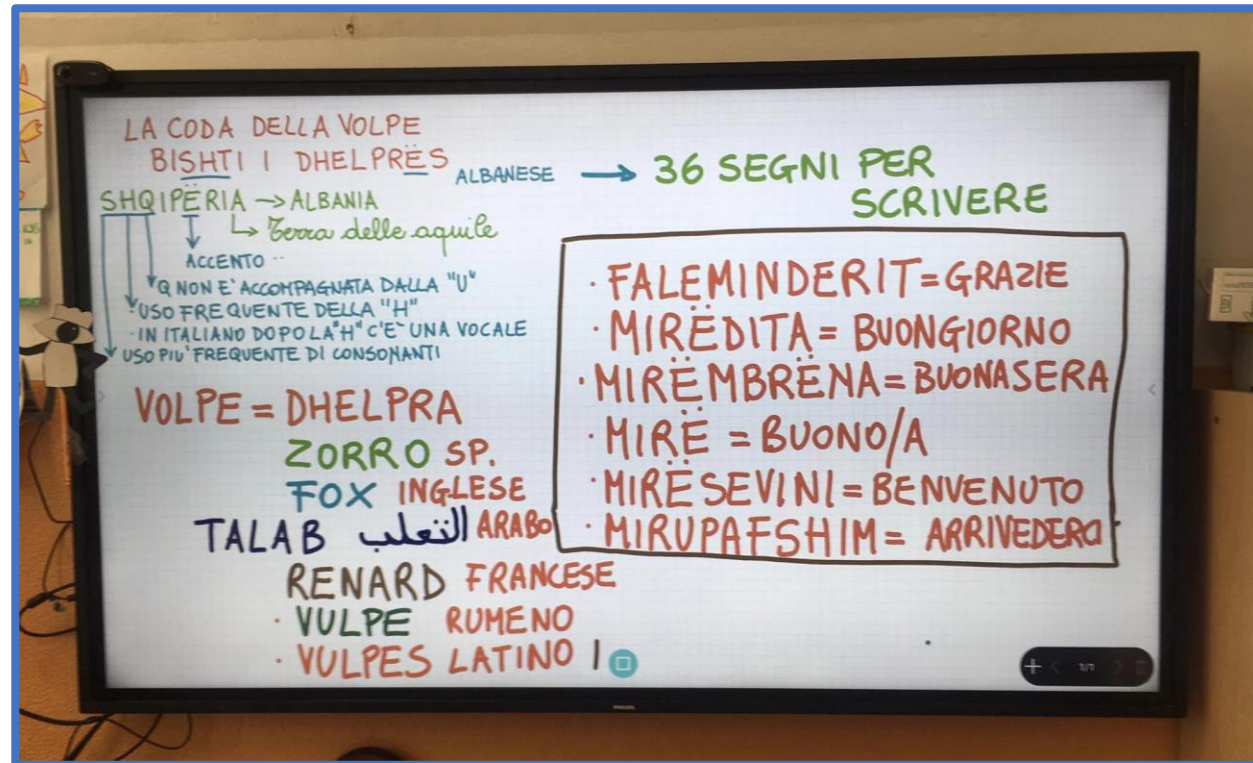 LA CODA DELLA VOLPE
BISHTI I DHELPRËS
ALBANESE → 36 SEGNI PER
SCRIVERE
SHQIPËRIA → ALBANIA
↳ Terra delle aquile
ACCENTO ¨
Q NON E' ACCOMPAGNATA DALLA "U"
USO FREQUENTE DELLA "H"
- IN ITALIANO DOPO LA "H" C'E' UNA VOCALE
USO PIU' FREQUENTE DI CONSONANTI
VOLPE = DHELPRA
ZORRO SP.
FOX INGLESE
TALAB الثعلب ARABO
RENARD FRANCESE
· VULPE RUMENO
· VULPES LATINO
· FALEMINDERIT = GRAZIE
· MIRËDITA = BUONGIORNO
· MIRËMBRËNA = BUONASERA
· MIRË = BUONO/A
· MIRËSEVINI = BENVENUTO
· MIRUPAFSHIM = ARRIVEDERCI
1/1
PHILIPS